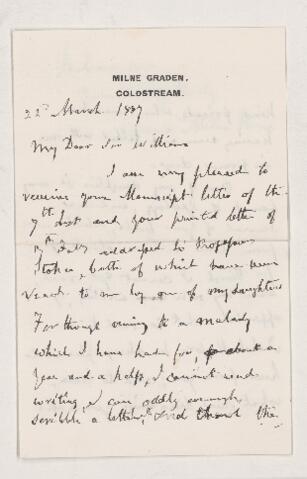 MILNE GRADEN,
COLDSTREAM.
22d March 1887
My Dear Sir William
I am very pleased to
receive your Manuscript letter of the
7th Inst and your printed letter of
addressed to Professor
Stokes, both of which have been
read to me by one of my daughters
For though owing to a malady
which I have had for about a
year and a half, I cannot read
writing, I can oddly enough
scribble a letter, And the